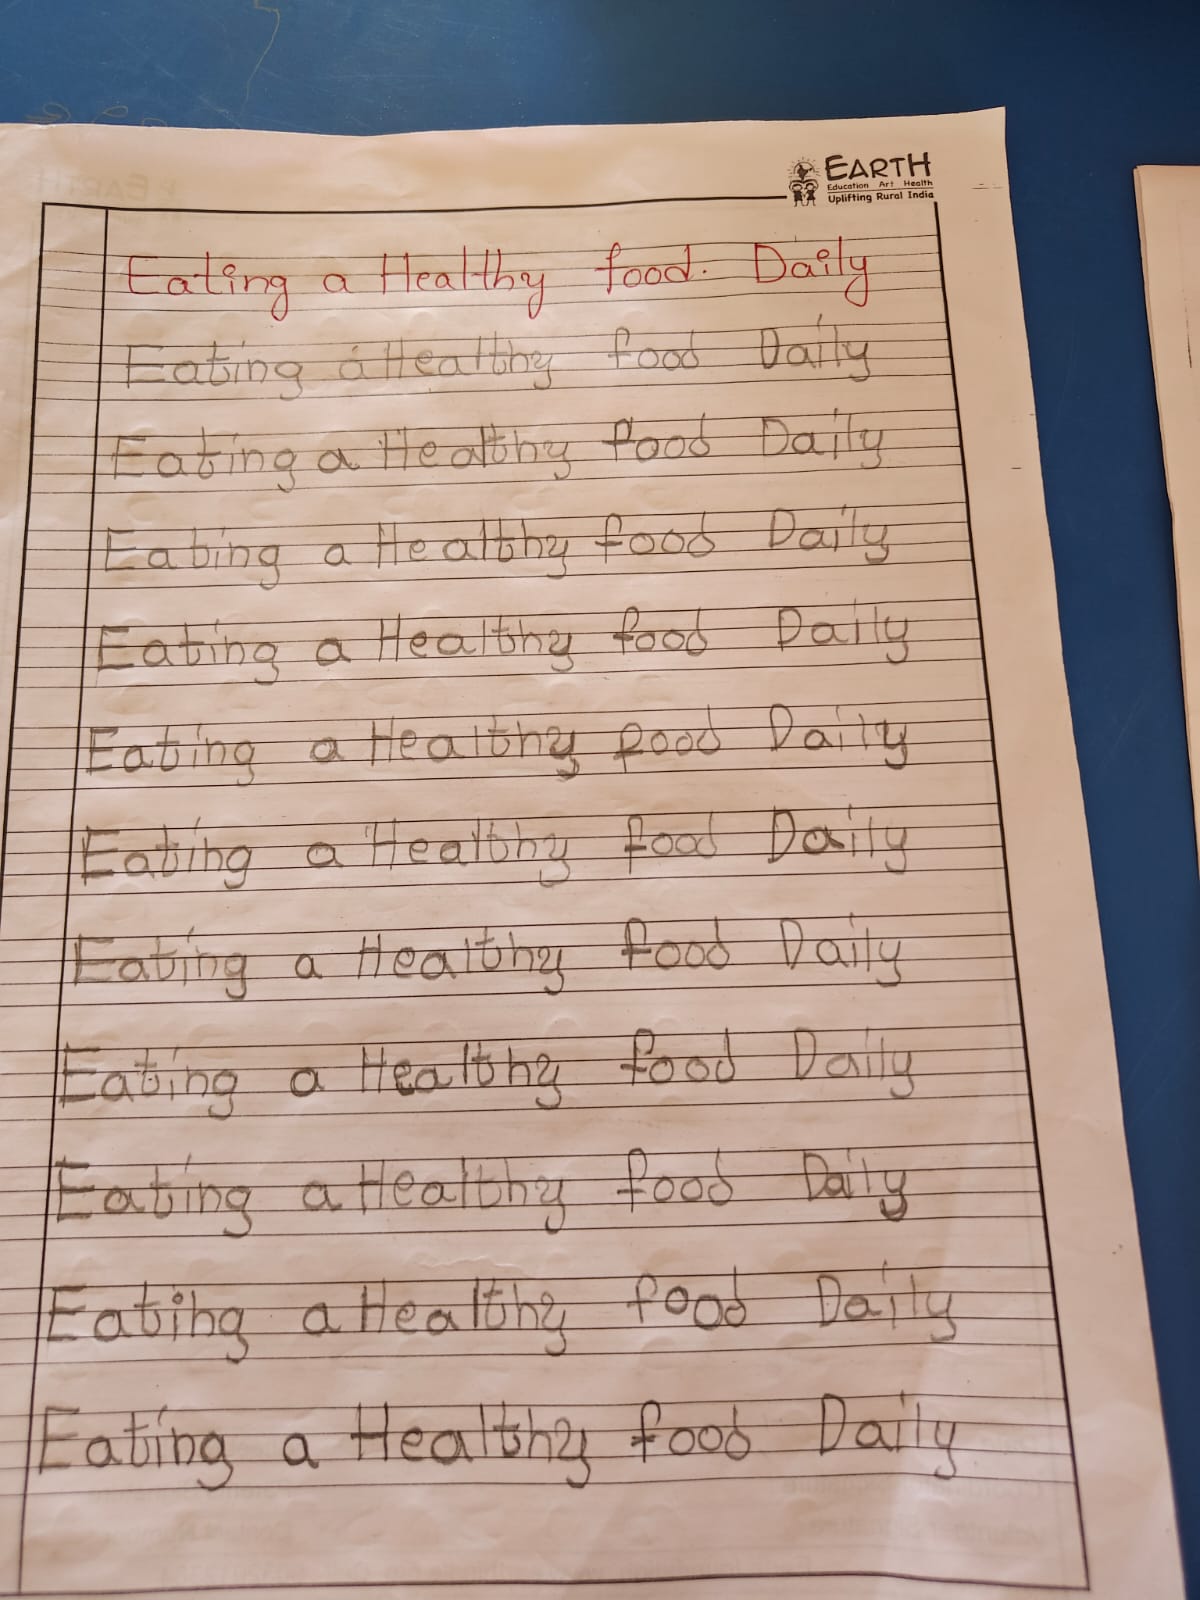 EARTH
Education Art Health
Uplifting Rural India
Eating a Healthy food. Daily
Eating a Healthy food Daily
Eating a Healthy food Daily
Eating a Healthy food Daily
Eating a Healthy food Daily
Eating a Healthy food Daily
Eating a Healthy food Daily
Eating a Healthy food Daily
Eating a Healthy food Daily
Eating a Healthy food Daily
Eating a Healthy food Daily
Eating a Healthy food Daily